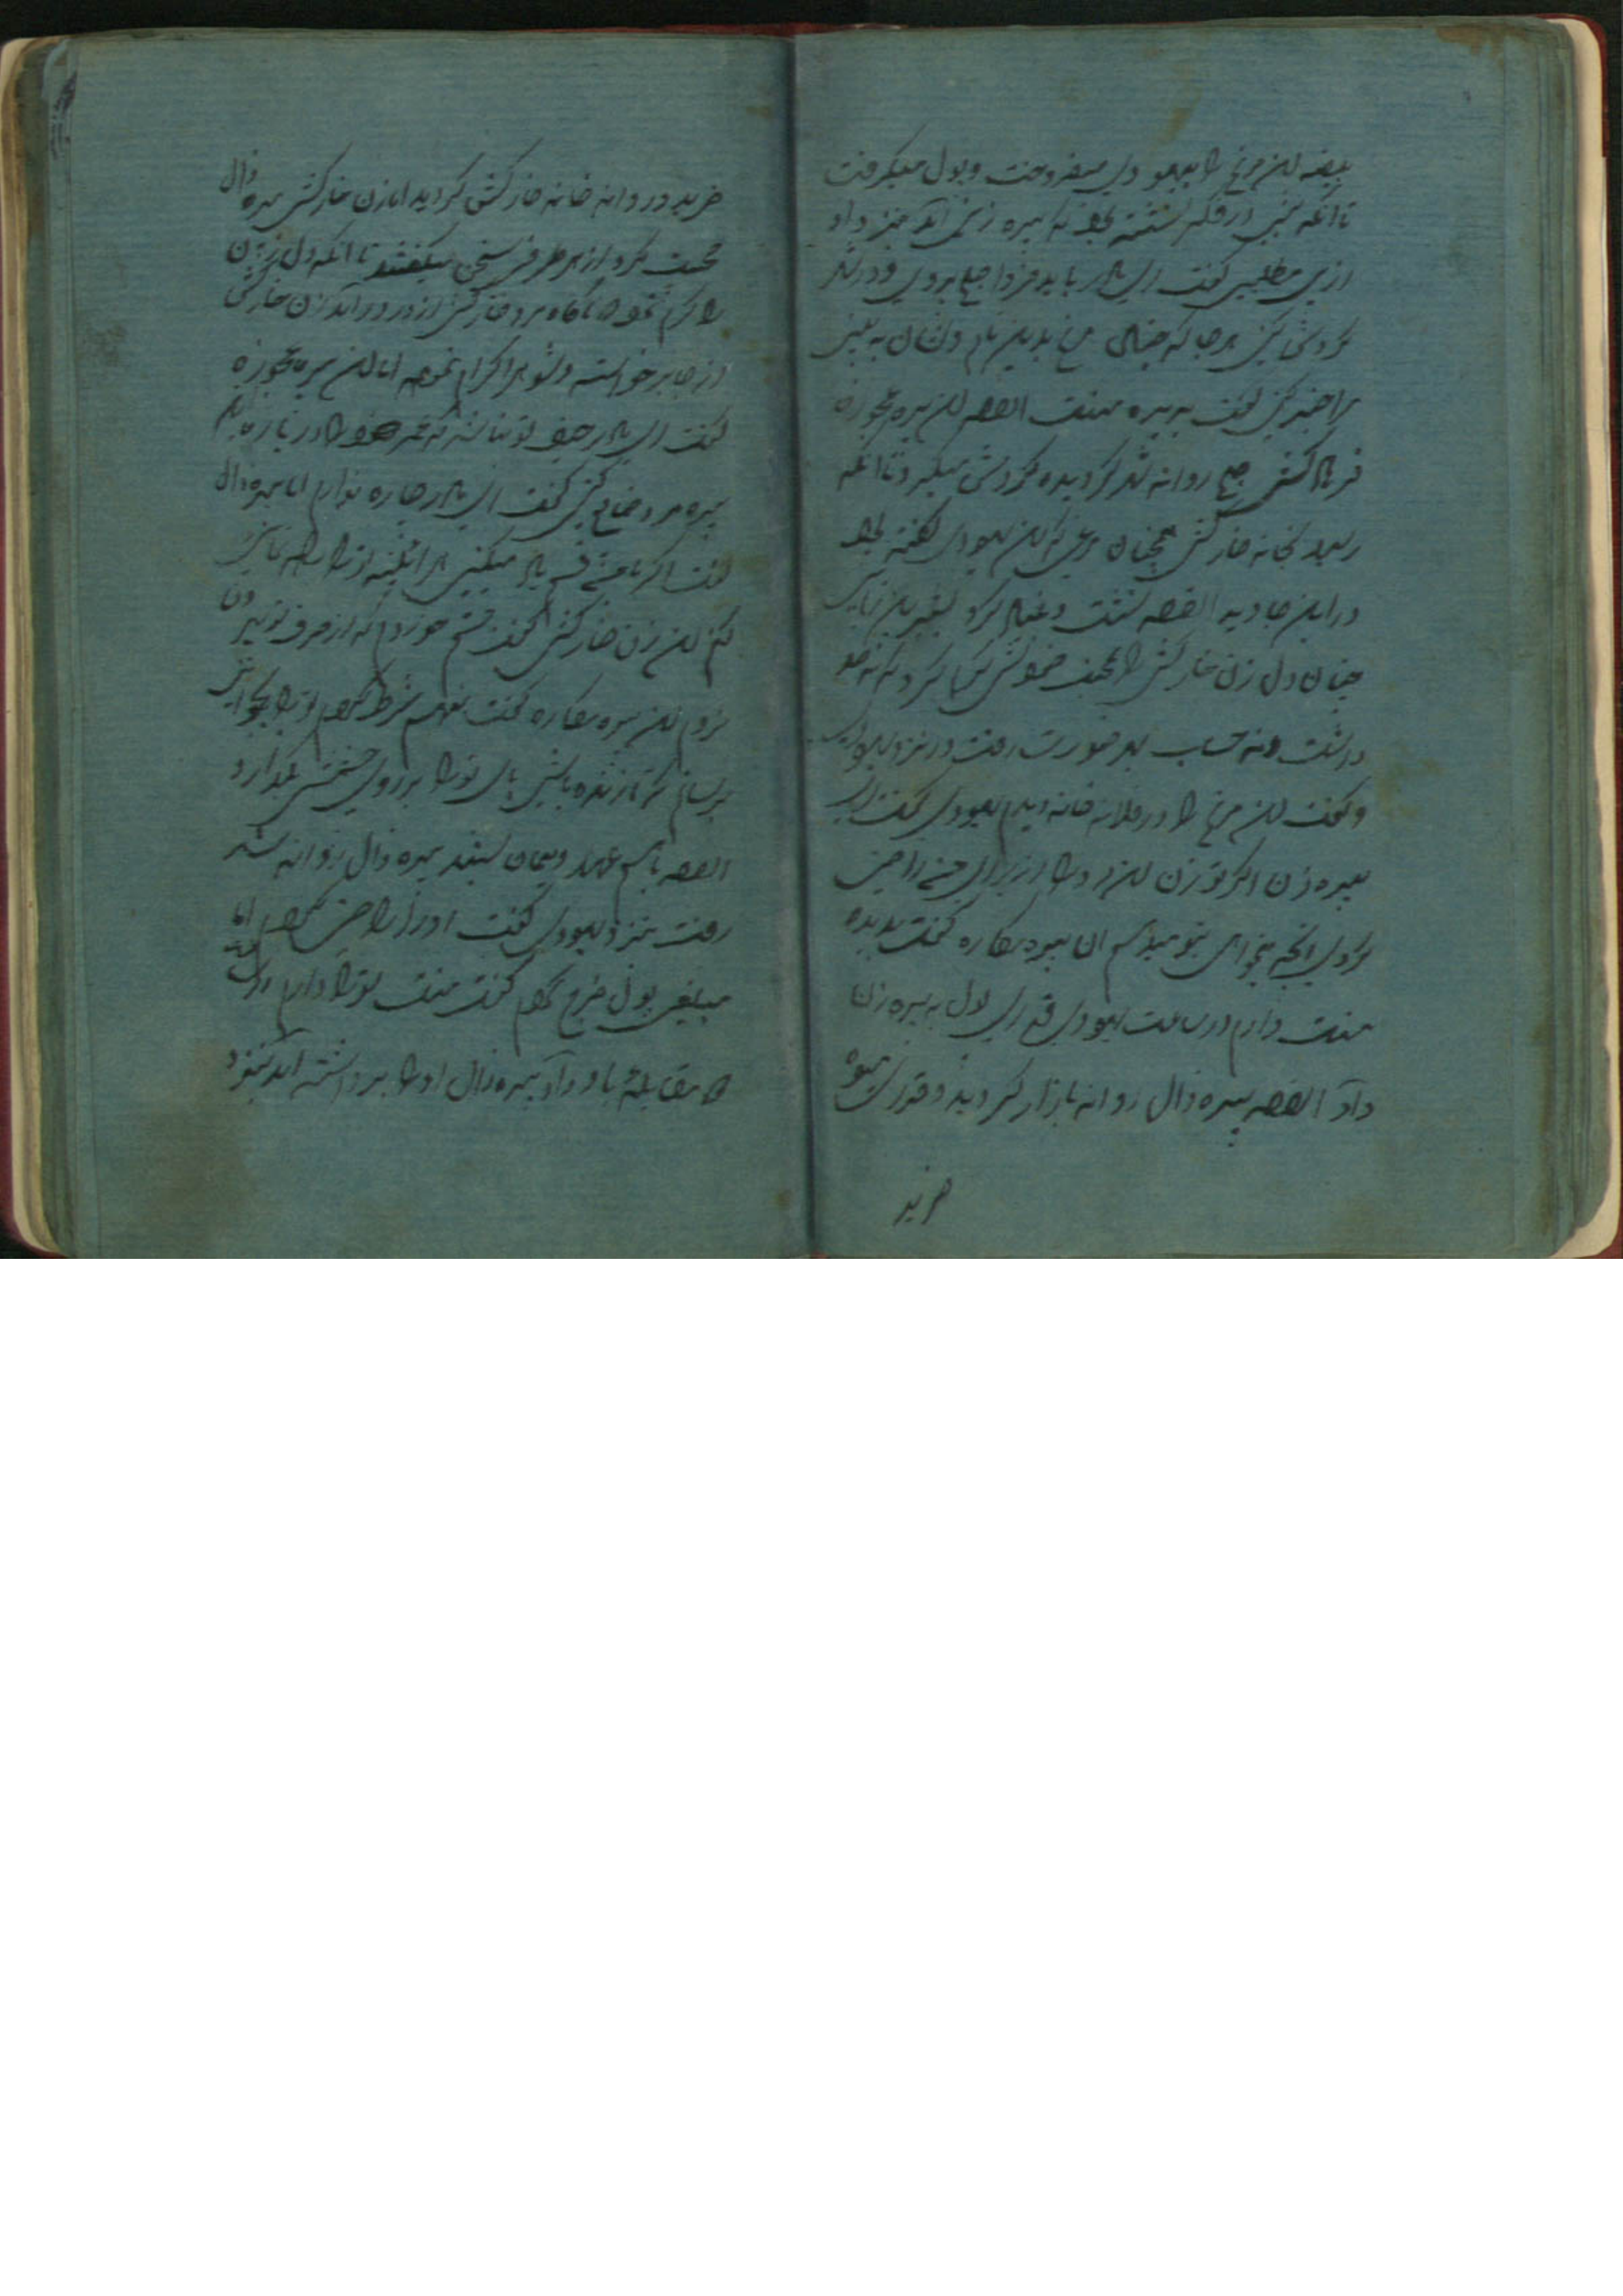 بیضه این مرغ را بیهودی میفروخت و پول میگرفت
تا آنکه شبی در فکر نشسته بود که پیره زنی آمد بنزد او
ازین مطلبی گفت ای مادر باید فردا صبح بروی و در شهر
گردش کنی هر جا که چنان مرغ بدین نام و نشان به بینی
مرا خبر کنی گفت به دیده منت القصه این پیره عجوزه
فردا صبح روانه شهر گردیده گردش میکرد تا آنکه
رسید بخانه خارکش همچنان مرغی که این یهودی گفته بود
در این جا دید القصه نشست و
چنان دل زن خارکش را بمحبت خود
داشت ونه حساب بهر صورت رفت در نزد یهودی
و گفت این مرغ را در فلانه خانه دیدم یهودی گفت ای
پیره زن اگر تو زن این مرد را از برای من راضی
کردی آنچه بخواهی بتو میدهم آن پیره مکاره گفت بدیده
منت دارم در ساعت یهودی قدری پول به پیره زن
داد القصه پیره زال روانه بازار گردید و قدری میوه
خرید
خرید و روانه خانه خارکش گردید اما زن خارکش پیره زال
محبت کرد از هر طرف سخن میگفتند تا آنکه دل زن
را نرم نمود ناگاه مرد خارکش از در در آمد زن خارکش
از جا برخواسته و شوهر اکرام نموده اما این پیره عجوزه
گفت ای مادر حیف تو نباشد که عمر خود را در
پیره مرد ضایع کنی گفت ای مادر چاره ندارم اما پیره زال
گفت اگر با من قسم یاد میکنی هر آینه از تو
کنم این زن خارکش گفت قسم خوردم که از حرف تو بیرون
نروم این پیره مکاره گفت منهم شرط کردم تو را بجائی
برسانم که تا زنده باشی پای تو را بر روی چشمش بگذارد
القصه باهم عهد و پیمان بستند پیره زال روانه شد
رفت بنزد یهودی گفت او را راضی کردم اما
مبلغی پول خرج کردم گفت منت تو را دارم
مقابله باو داد پیره زال او را برداشته آمد بنزد